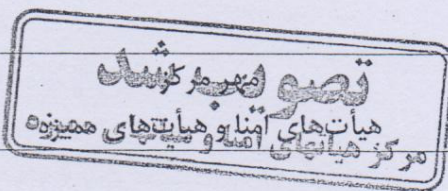 تصویب شد
مهر مرکز
هیأت‌های امنا و هیأت‌های ممیزه
مرکز هیأتهای امنا و هیأتهای ممیزه